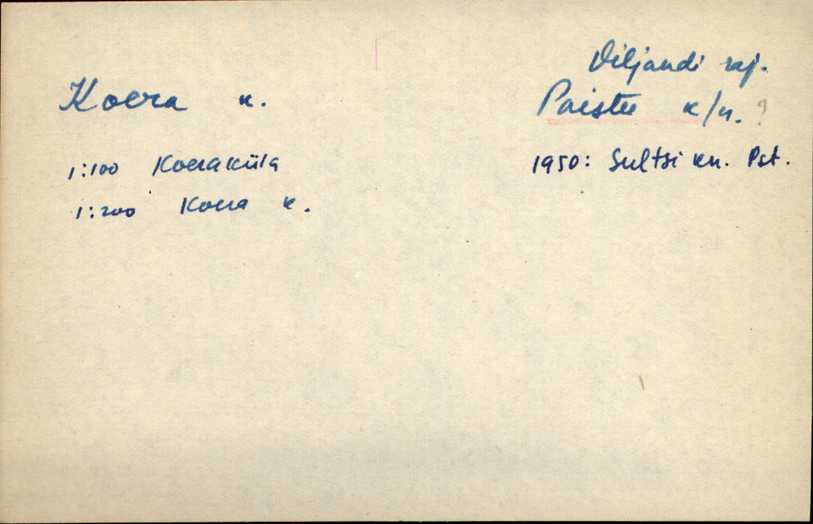 Viljandi raj.
Koera k.
Paistu k/n. ?
1:100 Koeraküla
1950: Sultsi kn. Pst.
1:200 Koera k.